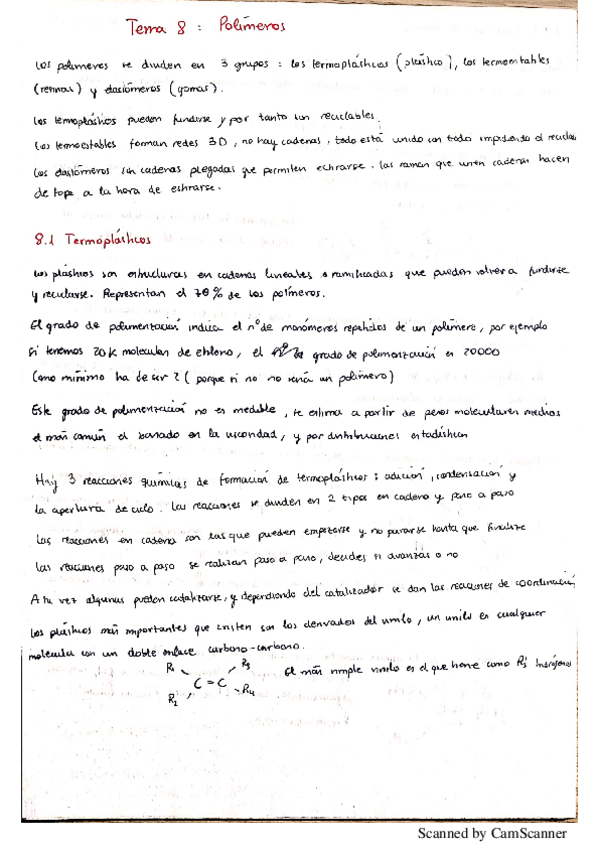 Tema 8 : Polímeros
Los polimeros se dividen en 3 grupos : los termoplásticos (plástico), los termoestables
(resinas) y elastómeros (gomas).
Los termoplásticos pueden fundirse y por tanto son reciclables.
Los termoestables forman redes 3D, no hay cadenas, todo está unido con todo impidiendo el reciclaje
Los elastómeros son cadenas plegadas que permiten estirarse. Las ramas que unen cadenas hacen
de tope a la hora de estirarse.
8.1 Termoplásticos
Los plásticos son estructuras en cadenas lineales o ramificadas que pueden volver a fundirse
y reciclarse. Representan el 78% de los polímeros.
El grado de polimerización indica el nº de monómeros repetidos de un polímero, por ejemplo
si tenemos 20k moleculas de etileno, el grado de polimerización es 20000
Como mínimo ha de ser 2 (porque si no no sería un polímero)
Este grado de polimerización no es medible, se estima a partir de pesos moleculares medios
el más común el basado en la viscosidad, y por distribuciones estadísticas
Hay 3 reacciones químicas de formación de termoplásticos : adición, condensación y
la apertura de ciclo. Las reacciones se dividen en 2 tipos en cadena y paso a paso
Las reacciones en cadena son las que pueden empezarse y no pararse hasta que finalice
Las reacciones paso a paso se realizan paso a paso, decides si avanzas o no
A su vez algunas pueden catalizarse, y dependiendo del catalizador se dan las reacciones de coordinación
Los plásticos más importantes que existen son los derivados del vinilo, un vinilo es cualquier
molecula con un doble enlace carbono-carbono.
R1 R3
C = C
R2 R4
El más simple vinilo es el que tiene como Rs hidrógenos
Scanned by CamScanner